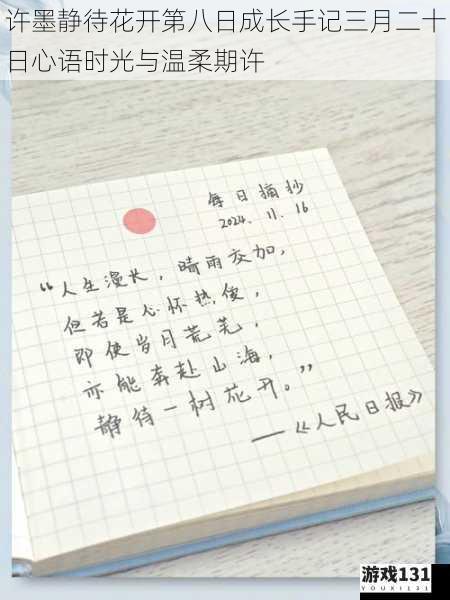 许墨静待花开第八日成长手记三月二十
日心语时光与温柔期许
每日摘抄
2024.11.16
“人生漫长，晴雨交加，
但若是心怀热爱，
即使岁月荒芜，
亦能奔赴山海，
静待一树花开。”
——《人民日报》
游戏131
YOUXI131